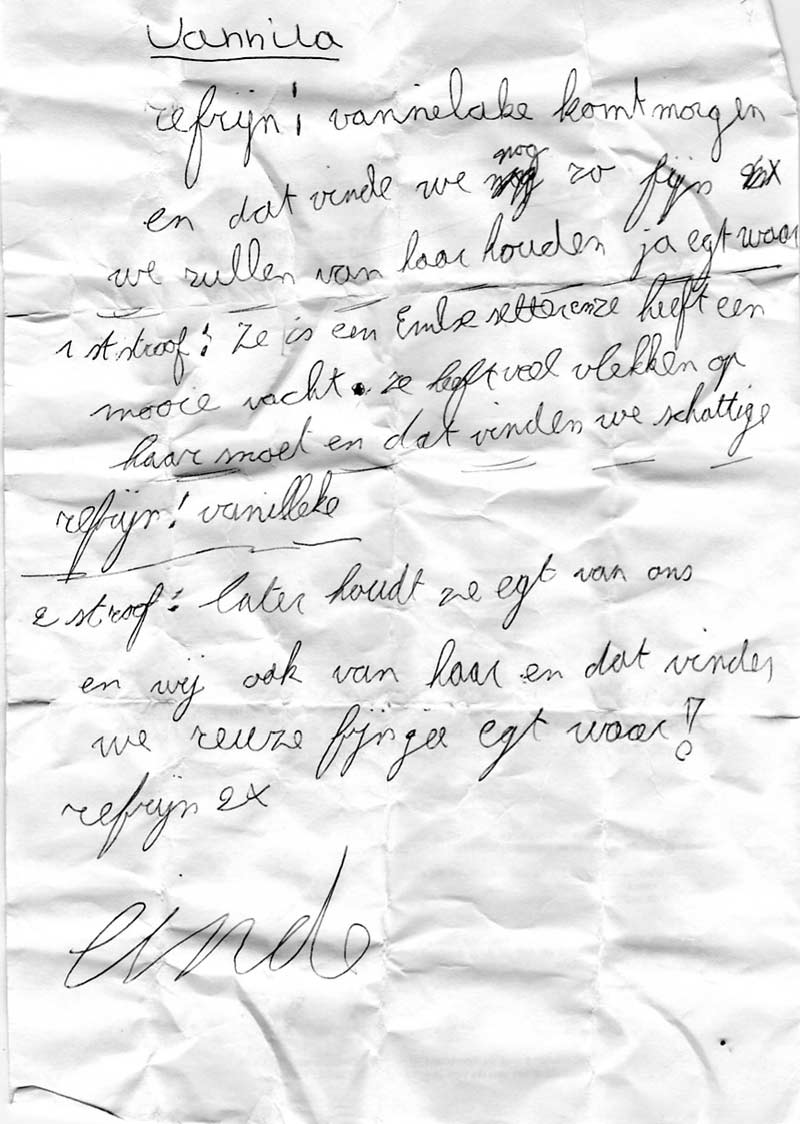 Vannila
refrijn! vannelake komt morgen
en dat vinde we nog zo fijn
we zullen van haar houden ja egt waar
1 ststroof! Ze is een heeft een
mooie vacht. ze heeft veel vlekken op
haar snoet en dat vinden we schattige
refrijn! vanilleke
2 stroof: later houdt ze egt van ons
en wij ook van haar en dat vinden
we reuze fijn jee egt waar!
refrijn 2x
einde